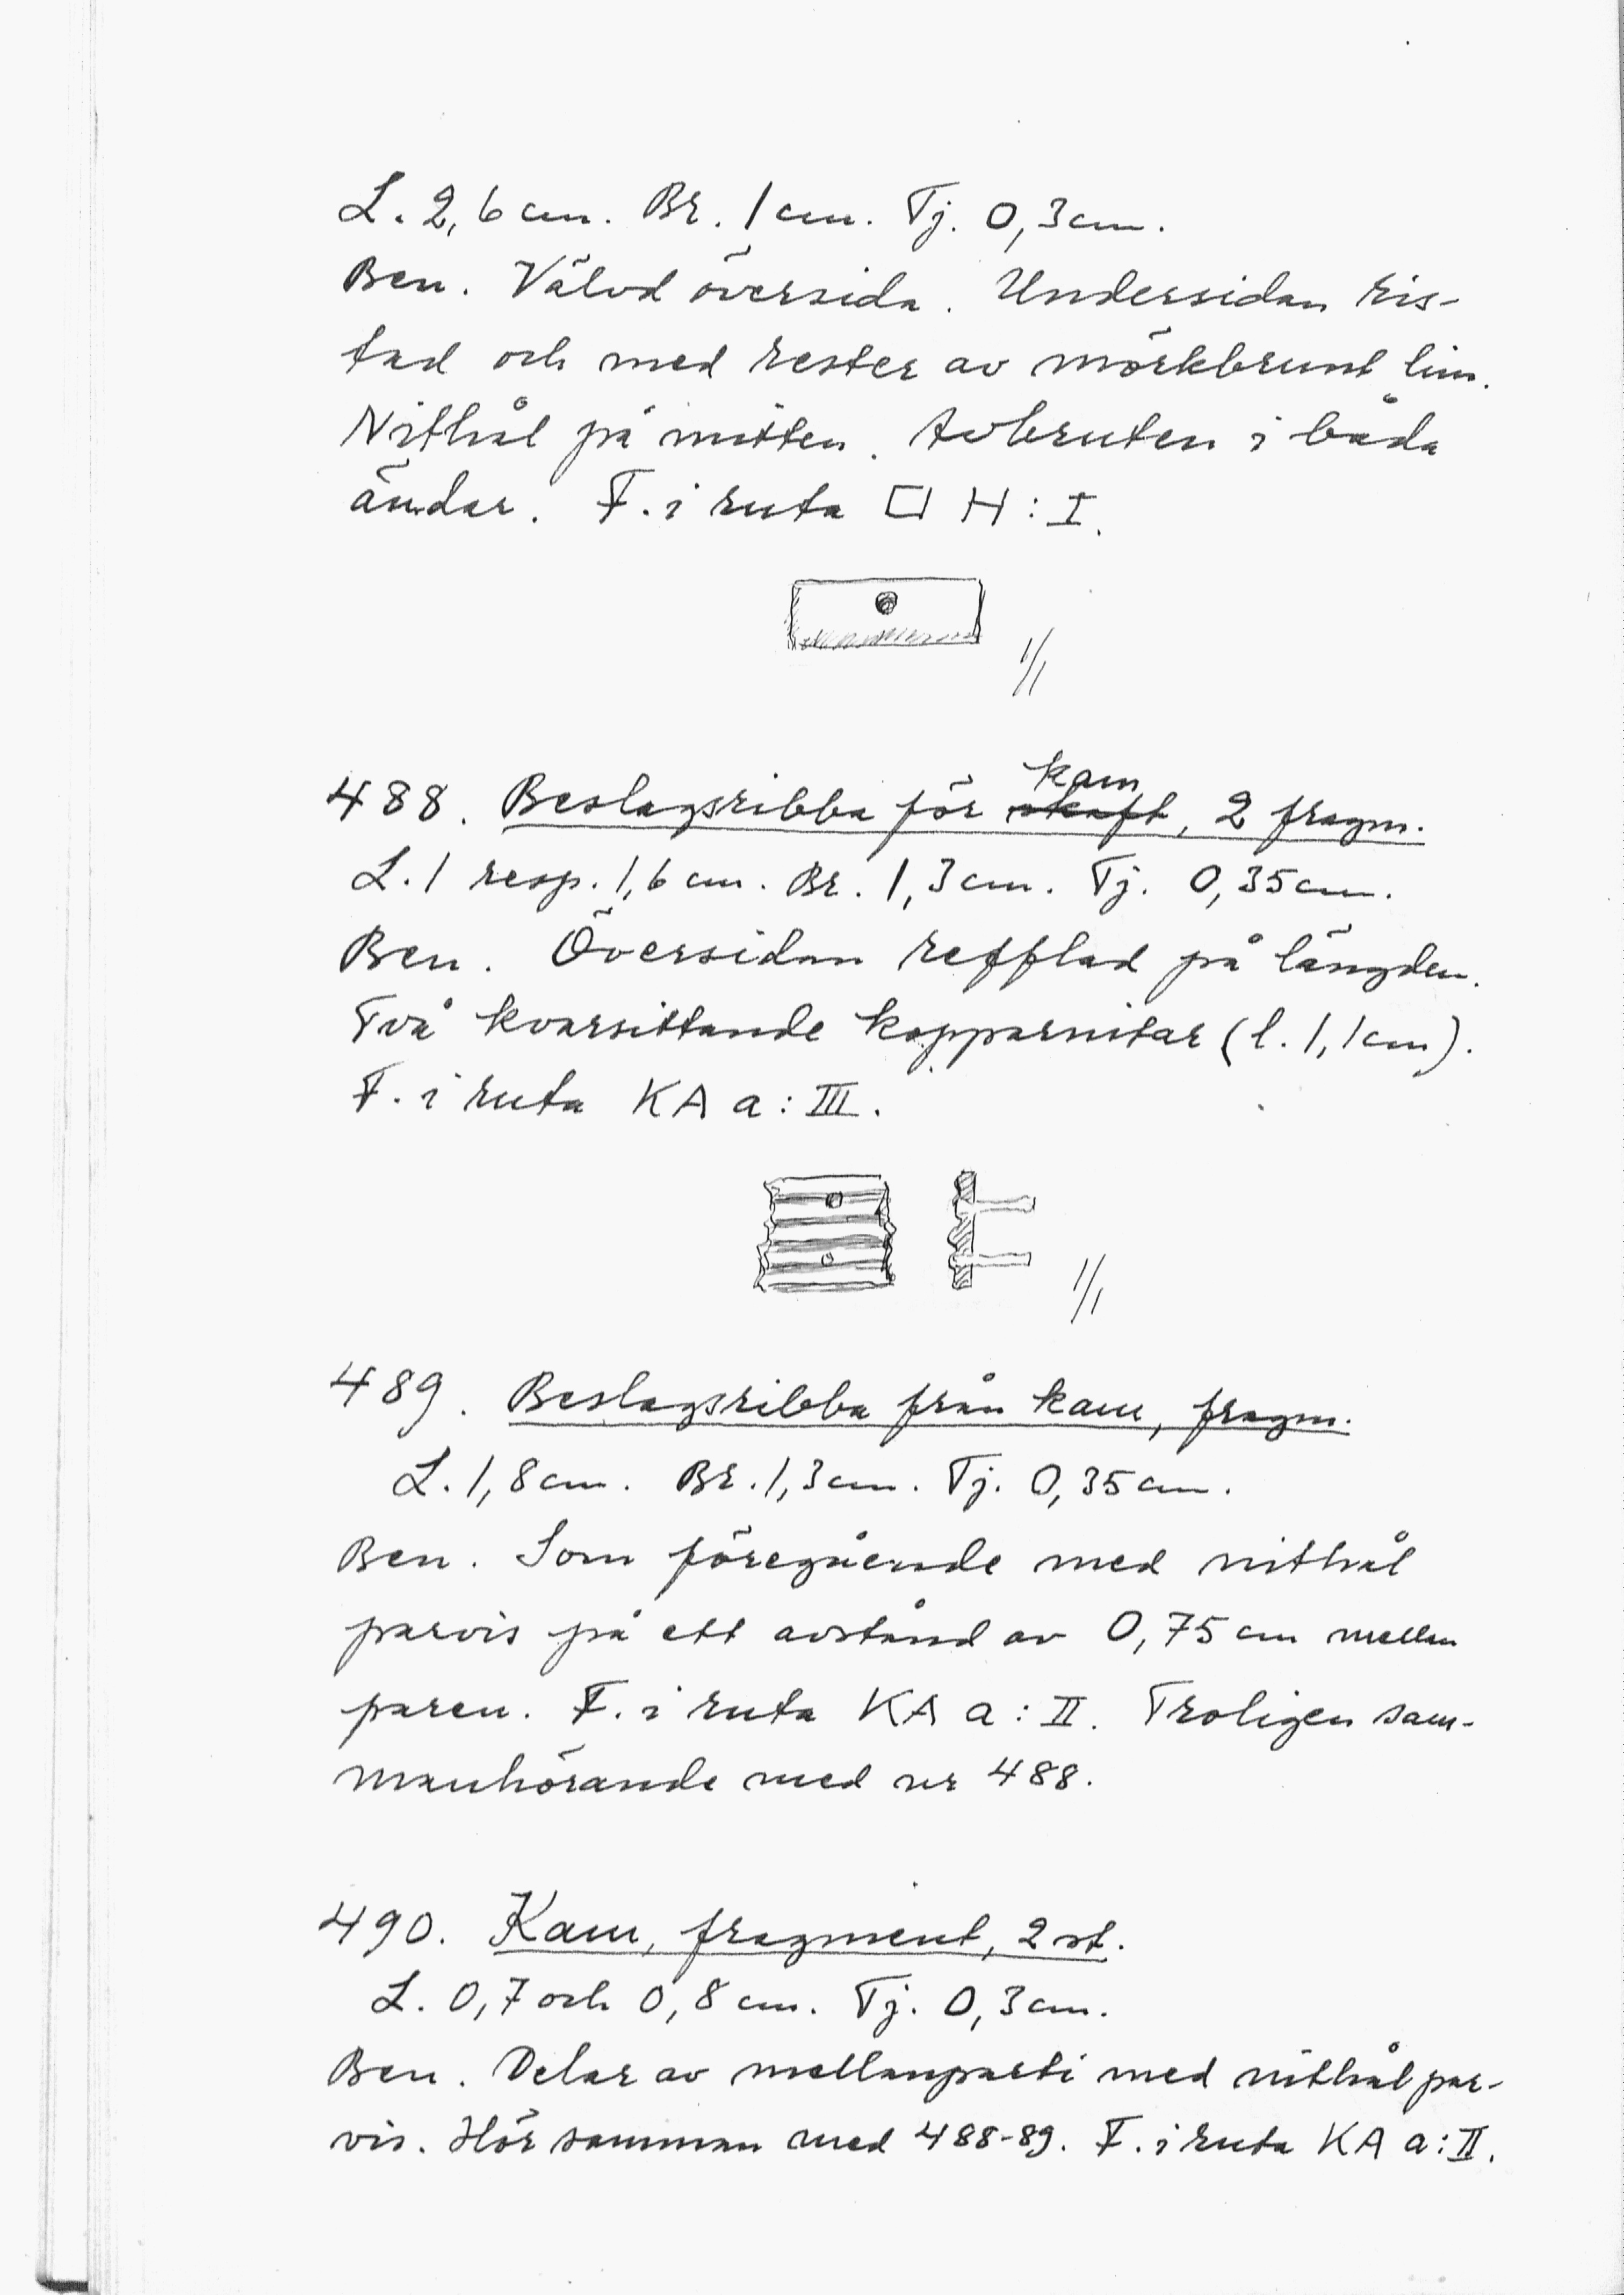 L. 2,6 cm. Br. 1 cm. Tj. 0,3 cm.
Ben. Välvd översida. Undersidan ris-
tad och med rester av mörkbrunt lim.
Nithål på mitten. Avbruten i båda
ändar. F. i ruta □ H : I.
1/1
kam
488. Beslagsribba för skaft, 2 fragm.
L. 1 resp. 1,6 cm. Br. 1,3 cm. Tj. 0,35 cm.
Ben. Översidan refflad på längden.
Två kvarsittande kopparnitar (l. 1,1 cm).
F. i ruta KA a : III.
1/1
489. Beslagsribba från kam, fragm.
L. 1,8 cm. Br. 1,3 cm. Tj. 0,35 cm.
Ben. Som föregående med nithål
parvis på ett avstånd av 0,75 cm mellan
paren. F. i ruta KA a : II. Troligen sam-
manhörande med nr 488.
490. Kam, fragment, 2 st.
L. 0,7 och 0,8 cm. Tj. 0,3 cm.
Ben. Delar av mellanparti med nithål par-
vis. Hör samman med 488-89. F. i ruta KA a : II.